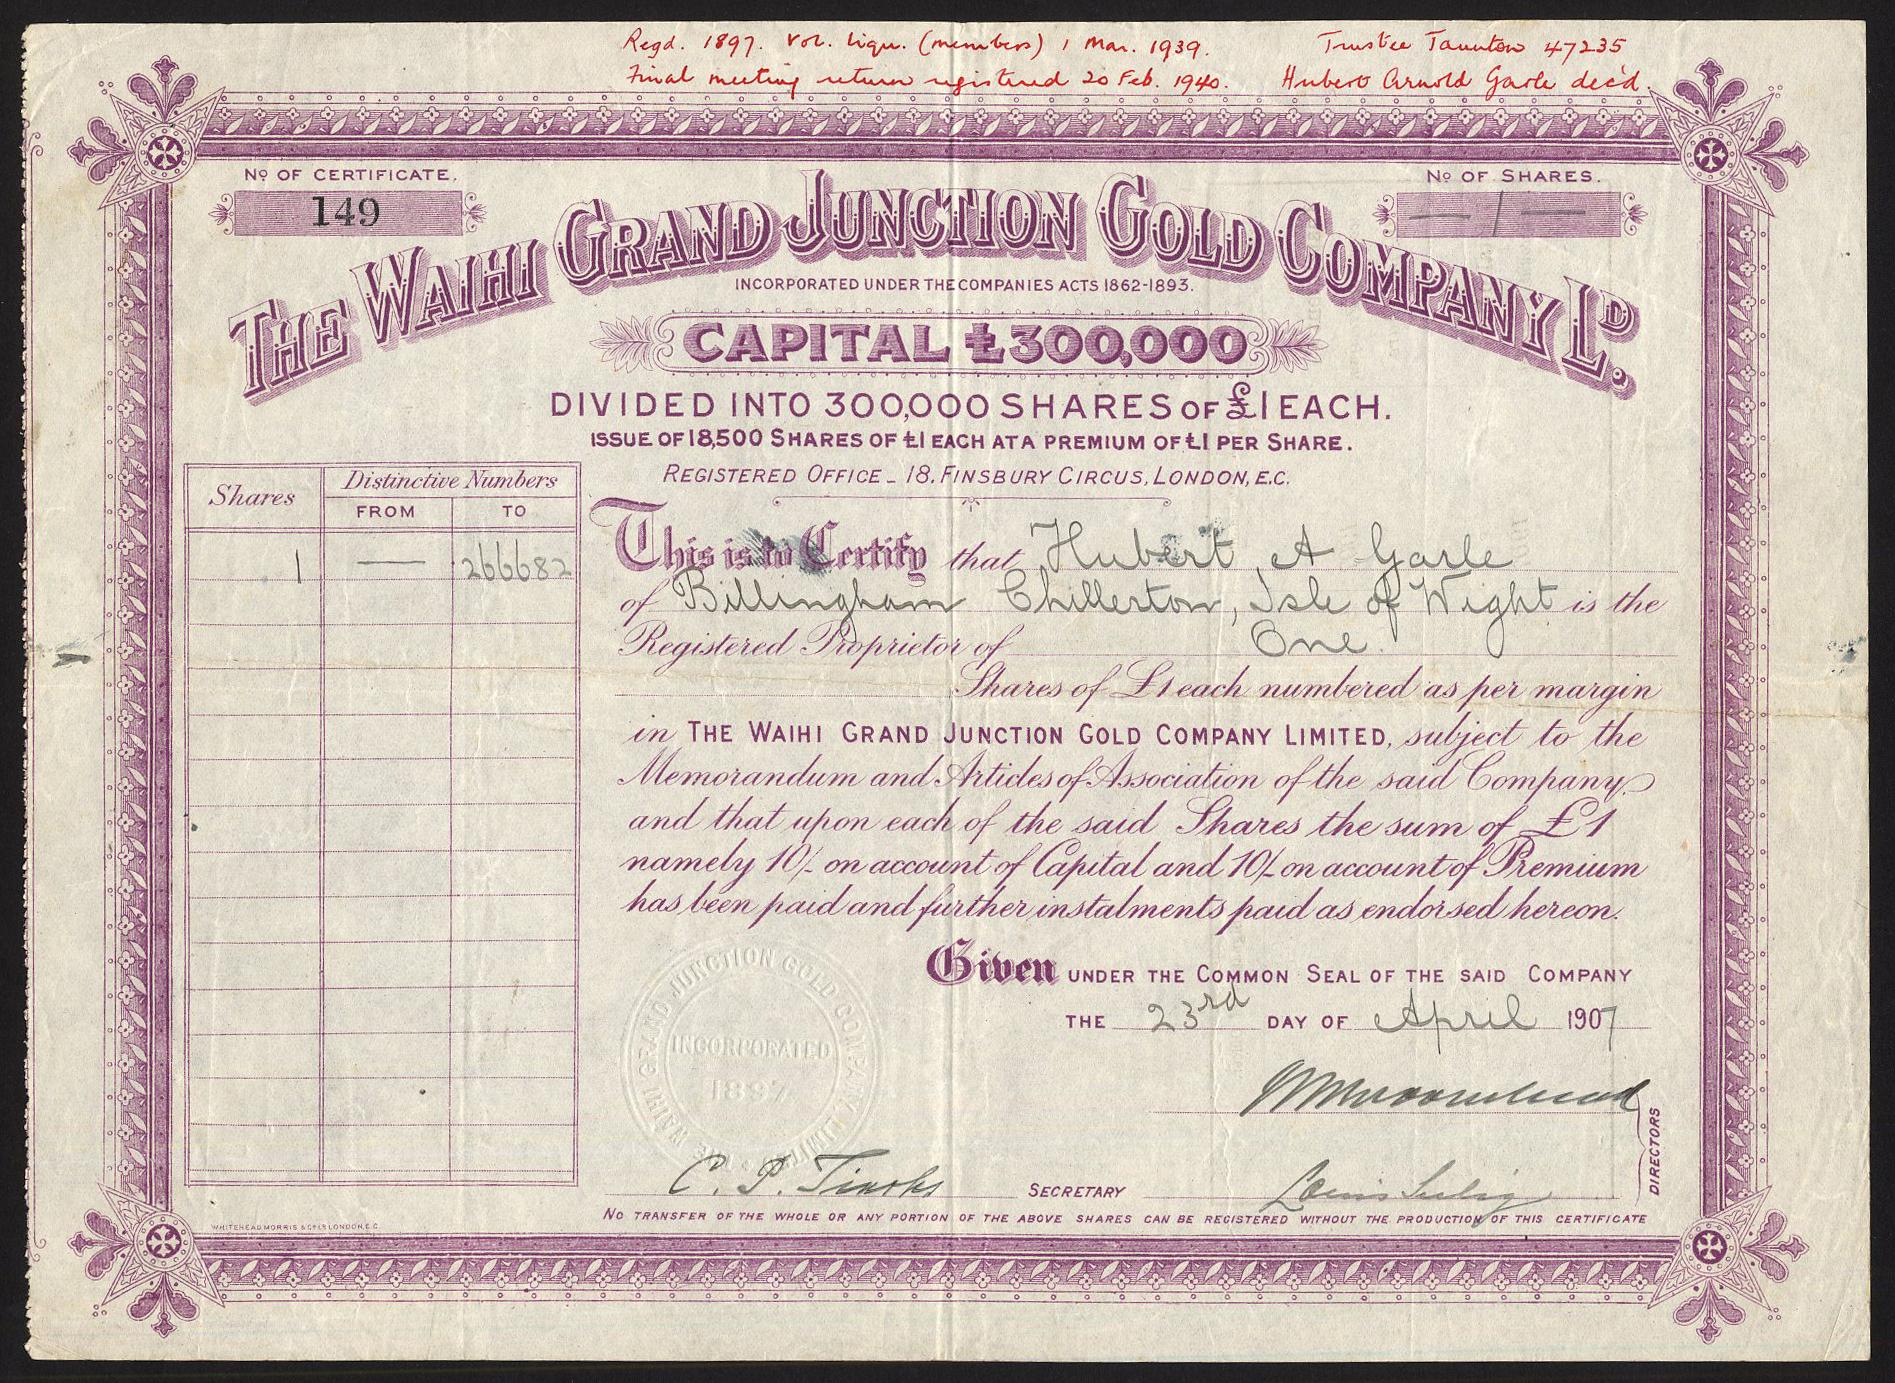 Regd. 1897. Vol. Liqu. (members) 1 Mar. 1939.
Final meeting return registered 20 Feb. 1940.
Trustee Taunton 47235
Hubert Arnold Garle dec'd.
No OF CERTIFICATE.
149
No OF SHARES.
— 1 —
THE WAIHI GRAND JUNCTION GOLD COMPANY LD.
INCORPORATED UNDER THE COMPANIES ACTS 1862-1893.
CAPITAL £300,000
DIVIDED INTO 300,000 SHARES OF £1 EACH.
ISSUE OF 18,500 SHARES OF £1 EACH AT A PREMIUM OF £1 PER SHARE.
REGISTERED OFFICE - 18, FINSBURY CIRCUS, LONDON, E.C.
Shares
Distinctive Numbers
FROM TO
1 — 266682
This is to Certify that Hubert A Garle
of Billingham Chillerton, Isle of Wight is the
Registered Proprietor of One.
Shares of £1 each numbered as per margin
in THE WAIHI GRAND JUNCTION GOLD COMPANY LIMITED, subject to the
Memorandum and Articles of Association of the said Company,
and that upon each of the said Shares the sum of £1
namely 10/- on account of Capital and 10/- on account of Premium
has been paid and further instalments paid as endorsed hereon.
Given UNDER THE COMMON SEAL OF THE SAID COMPANY
THE 23rd DAY OF April 1907
THE WAIHI GRAND JUNCTION GOLD COMPANY LIMITED
INCORPORATED
1897
DIRECTORS
C. P.
SECRETARY
Louis
NO TRANSFER OF THE WHOLE OR ANY PORTION OF THE ABOVE SHARES CAN BE REGISTERED WITHOUT THE PRODUCTION OF THIS CERTIFICATE
WHITEHEAD MORRIS & CO LD LONDON, E.C.